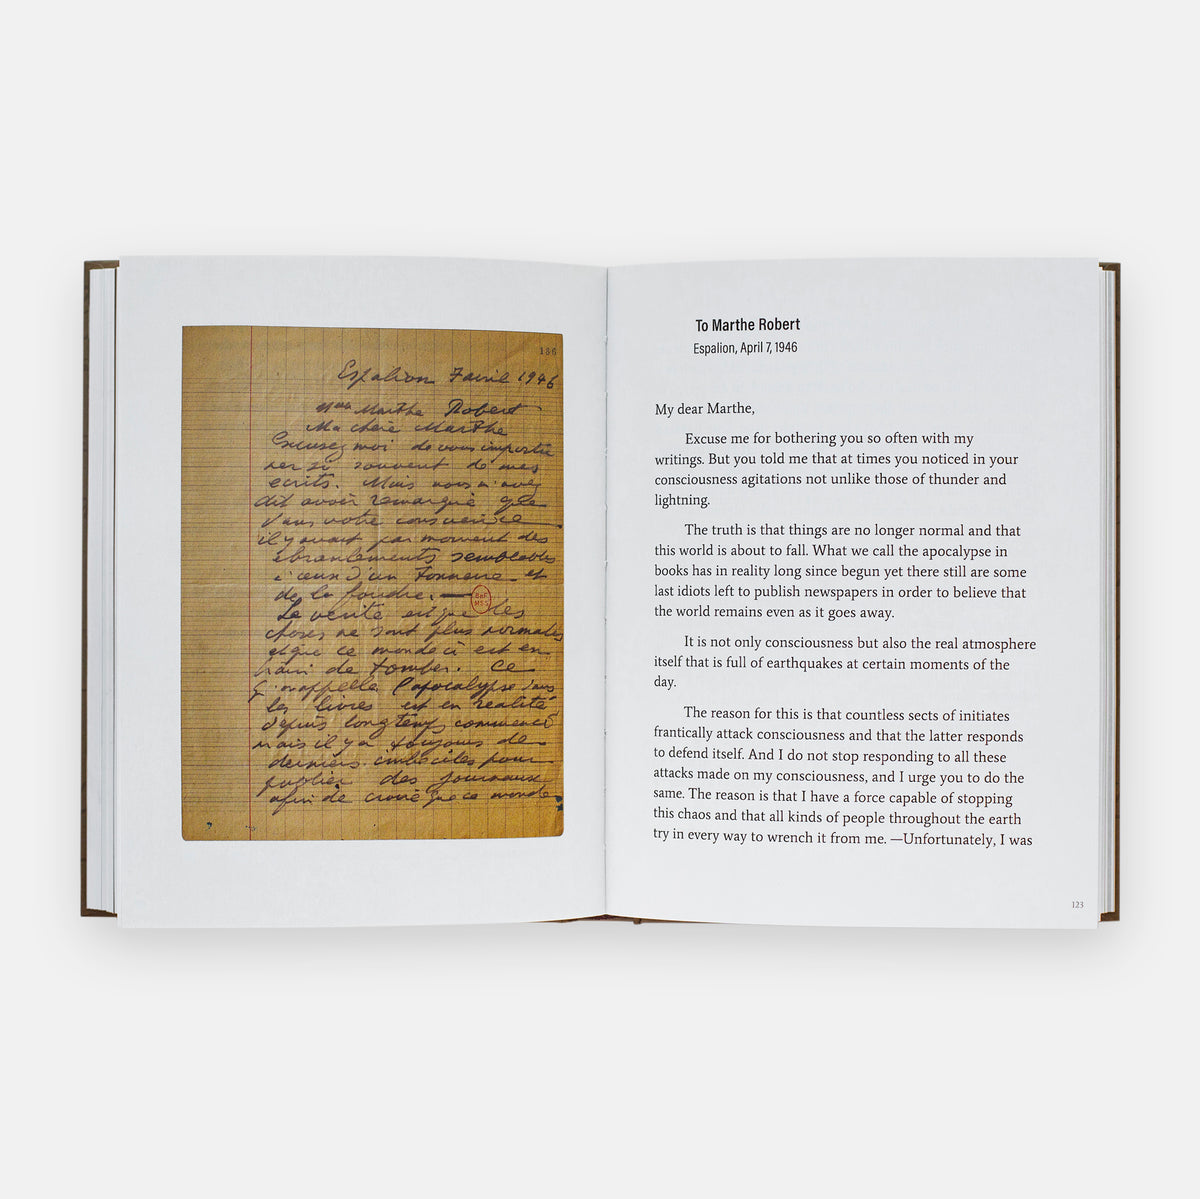 136
Espalion 7 avril 1946
Mme Marthe Robert
Ma chère Marthe
Excusez moi de vous importu
ner si souvent de mes
écrits. Mais vous m'avez
dit avoir remarqué que
dans votre conscience
il y avait par moment des
ébranlements semblables
à ceux d'un tonnerre et
de la foudre. —
La vérité est que les
choses ne sont plus normales
et que ce monde ci est en
train de tomber. Ce
qu'on appelle l'apocalypse dans
les livres est en réalité
depuis longtemps commencé
mais il y a toujours de
derniers imbéciles pour
publier des journaux
afin de croire que ce monde
To Marthe Robert
Espalion, April 7, 1946
My dear Marthe,
Excuse me for bothering you so often with my
writings. But you told me that at times you noticed in your
consciousness agitations not unlike those of thunder and
lightning.
The truth is that things are no longer normal and that
this world is about to fall. What we call the apocalypse in
books has in reality long since begun yet there still are some
last idiots left to publish newspapers in order to believe that
the world remains even as it goes away.
It is not only consciousness but also the real atmosphere
itself that is full of earthquakes at certain moments of the
day.
The reason for this is that countless sects of initiates
frantically attack consciousness and that the latter responds
to defend itself. And I do not stop responding to all these
attacks made on my consciousness, and I urge you to do the
same. The reason is that I have a force capable of stopping
this chaos and that all kinds of people throughout the earth
try in every way to wrench it from me. —Unfortunately, I was
123